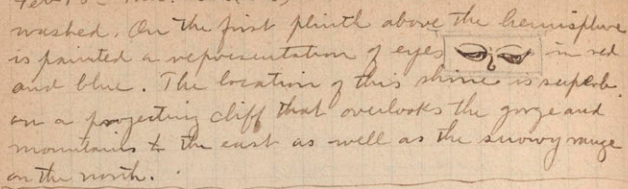 washed. On the first plinth above the hemisphere
is painted a representation of eyes in red
and blue. The location of this shrine is superb.
on a projecting cliff that overlooks the gorge and
mountains to the east as well as the snowy range
on the north.